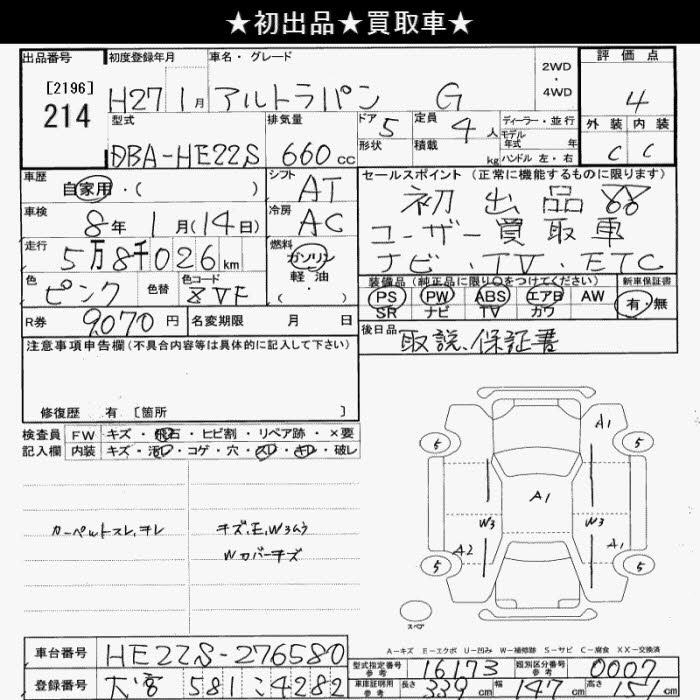 ★初出品★買取車★
出品番号 初度登録年月 車名・グレード 2WD・4WD 評価点
[2196]
214 H27 1月 アルトラパン G 4
型式 排気量 ドア 5 定員 4人 ディーラー・並行
形状 積載 kg モデル年式 年 外装 内装
DBA-HE22S 660cc ハンドル 左・右 C C
車歴 自家用・( ) シフト AT
セールスポイント (正常に機能するものに限ります)
初出品
ユーザー買取車
ナビ・TV・ETC
車検 8年 1月(14日) 冷房 AC
走行 5万8千026km 燃料 ガソリン 軽油 ( )
色 ピンク 色替 色コード ZVF
装備品 (純正品に限り○をつけてください) 新車保証書
PS PW ABS エアB AW 有・無
SR ナビ TV カワ
R券 9070円 名変期限 月 日
後日品 取説、保証書
注意事項申告欄(不具合内容等は具体的に記入して下さい)
修復歴 有 [箇所 ]
検査員 FW キズ・飛石・ヒビ割・リペア跡・×要
記入欄 内装 キズ・汚レ・コゲ・穴・スレ・キレ・破レ
カーペットスレ,ヨレ キズ,E,Wヨムラ
Wカバーキズ
A1
5 5
A1
W3 W3
A2 A1
5 5
スペア
A-キズ E-エクボ U-凹み W-補修跡 S-サビ C-腐食 XX-交換済
車台番号 HE22S-276580
型式指定番号 参考 16173 類別区分番号 参考 0007
登録番号 大宮 581 こ4282
車庫証明用 参考 長さ 339cm 幅 147cm 高さ 151cm